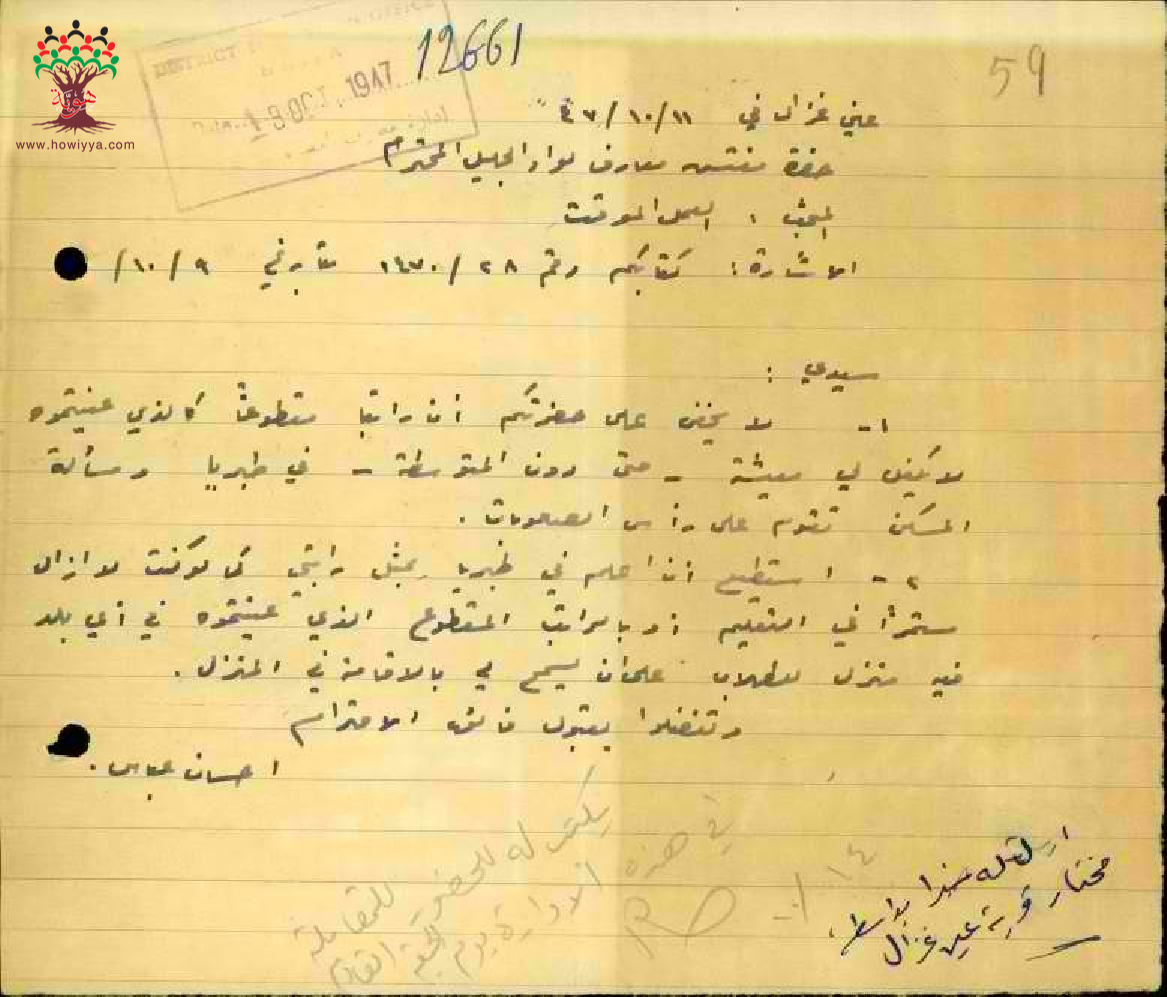 DISTRICT OFFICE
13 OCT. 1947
12661
59
هوية
www.howiyya.com
عين غزال في ١١/١٠/٤٧
حضرة مفتش معارف لواء الجليل المحترم
المبحث : العمل الموقت
الاشارة : كتابكم رقم ٢٨/١٤٧٠ تاريخ ٩/١٠/
سيدي :
١- لا يخفى على حضرتكم ان راتبا مقطوعا كالذي عينتموه
لا يكفل لي معيشة - حتى دون المتوسطة - في طبريا ومسألة
المسكن تقوم على رأس الصعوبات .
٢- استطيع ان اعلم في طبريا بمثل راتبي كما لو كنت لا ازال
مستمرا في التعليم أو بالراتب المقطوع الذي عينتموه في أي بلد
فيه منزل للطلاب على ان يسمح لي بالاقامة في المنزل .
وتفضلوا بقبول فائق الاحترام
احسان عباس .
يكتب له للحضور للمقابلة
في هذه الادارة يوم الجمعة القادم
١٤/١٠
ارسلت له هذا بواسطة
مختار قرية عين غزال